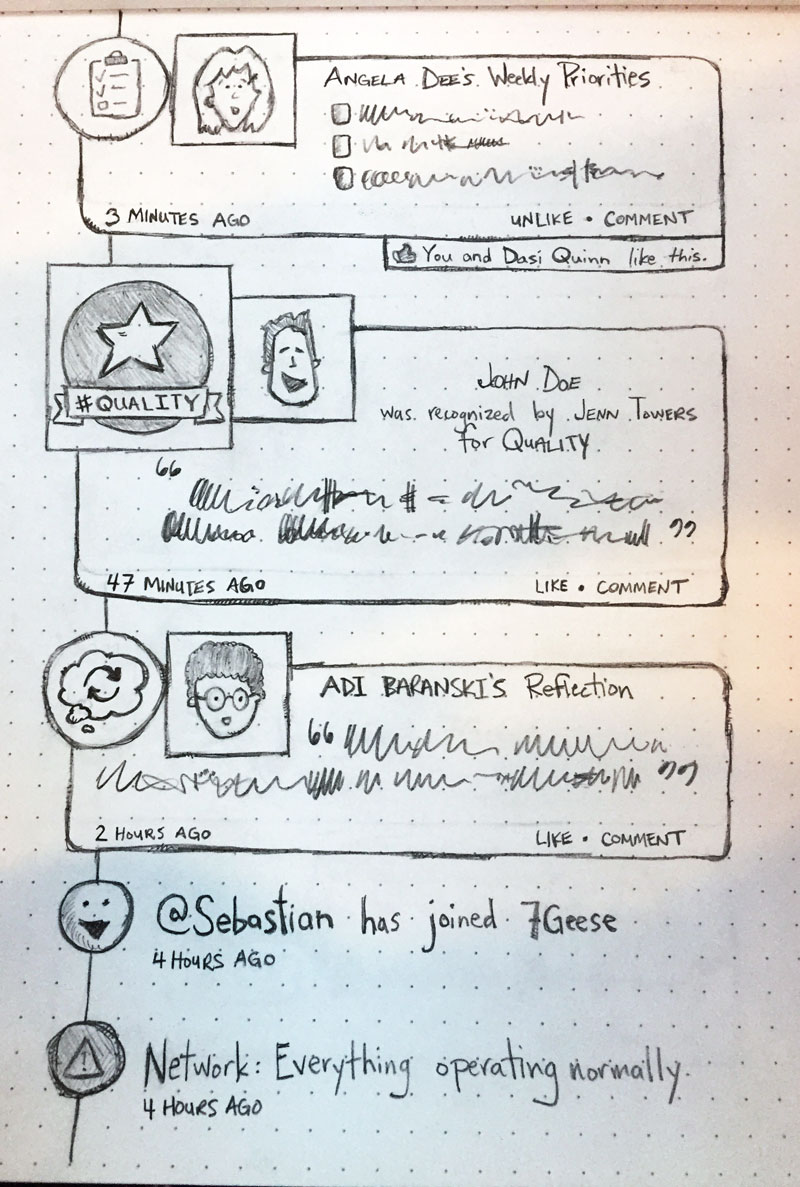 ANGELA DEE'S Weekly Priorities
3 MINUTES AGO
UNLIKE • COMMENT
You and Dasi Quinn like this.
#QUALITY
JOHN DOE
was recognized by JENN TOWERS
for QUALITY
47 MINUTES AGO
LIKE • COMMENT
ADI BARANSKI'S Reflection
2 HOURS AGO
LIKE • COMMENT
@Sebastian has joined 7Geese
4 HOURS AGO
Network: Everything operating normally.
4 HOURS AGO